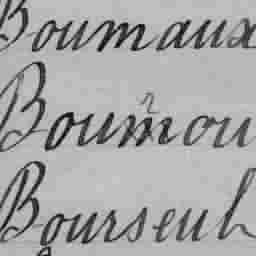 Boumaux
Bournou
Bourseul